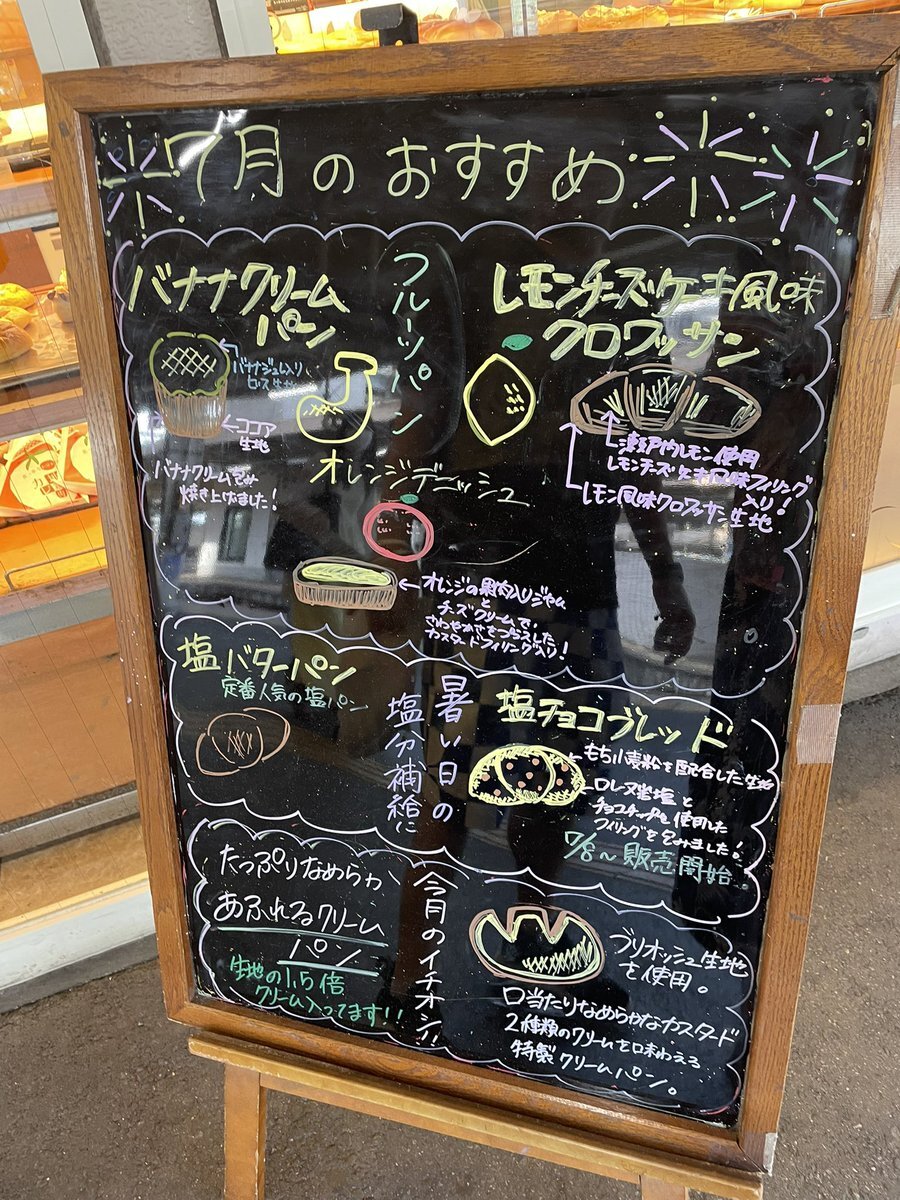 7月のおすすめ
フルーツパン
バナナクリーム
パン
バナジュレ入り
ビス生地
ココア
生地
バナナクリーム包み
焼き上げました!
レモンチーズケーキ風味
クロワッサン
瀬戸内レモン使用
レモンチーズケーキ風味フィリング
入り!
レモン風味クロワッサン生地
オレンジデニッシュ
オレンジの果肉入りジャム
と
チーズクリームで、
さわやかさをプラスした
カスタードフィリング入り!
暑い日の
塩分補給に
塩バターパン
定番人気の塩パン
塩チョコブレッド
もち小麦粉を配合した生地
ロレーヌ岩塩と
チョコチップを使用した
フィリングを包みました!
7/8〜販売開始
今月のイチオシ!!
たっぷりなめらか
あふれるクリーム
パン
生地の1.5倍
クリーム入ってます!!
ブリオッシュ生地
を使用。
口当たりなめらかなカスタード
2種類のクリームを味わえる
特製クリームパン。